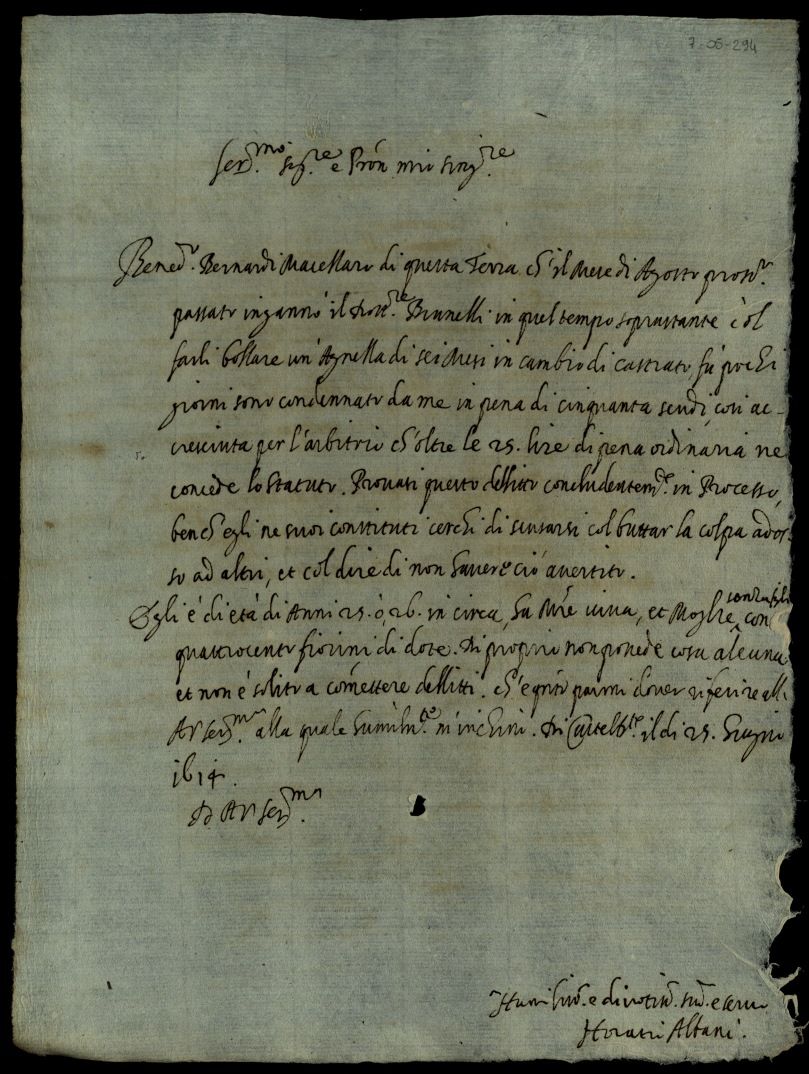 7-05-294
Ser.mo Sig.re e Pròn mio sing.re
Bened.o Bernardi Macellaro di questa Terra ch'il Mese di Agosto pross.o
passato ingannò il Dott.re Brunelli in quel tempo soprastante è col
farli bollare un'Agnella di sei Mesi in cambio di castrato fù pochi
giorni sono condennato da me in pena di cinquanta scudi, così ac-
cresciuta per l'arbitrio ch'oltre le 25. lire di pena ordinaria ne
concede lo Statuto. Provasi questo dellitto concludentem.te in Processo,
bench'egli ne suoi constituti cerchi di scusarsi col buttar la colpa ados-
so ad altri, et col dire di non havere ciò avertito.
Egli é di età di Anni 25. ò, 26. in circa, hà Mře viva, et Moglie senza figli, con
quattrocento fiorini di dote. Di proprio non possiede cosa alcuna
et non é solito a comettere dellitti. Ch'é q̃nto parmi dover riferire all'
AV Ser.ma alla quale humilm.te m'inchino. Di Castelb.te il di 25. Giugno
1614.
D AV Ser.ma
Humiliss.o e divotiss.o sud.o e servo
Horatio Albani.